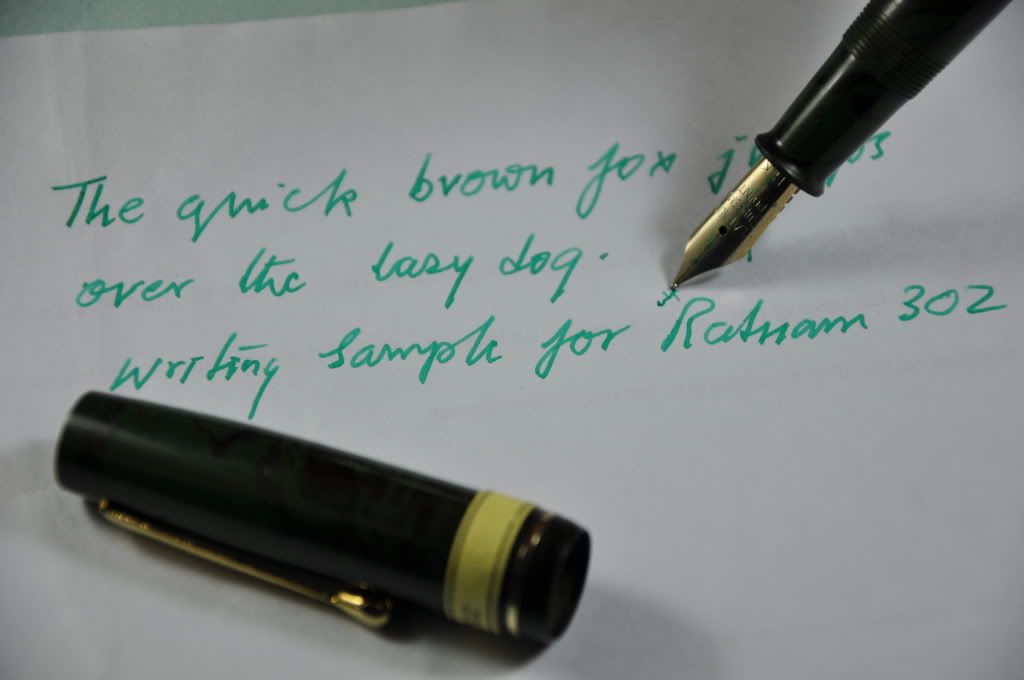 The quick brown fox
over the lazy dog.
Writing Sample for Ratnam 302